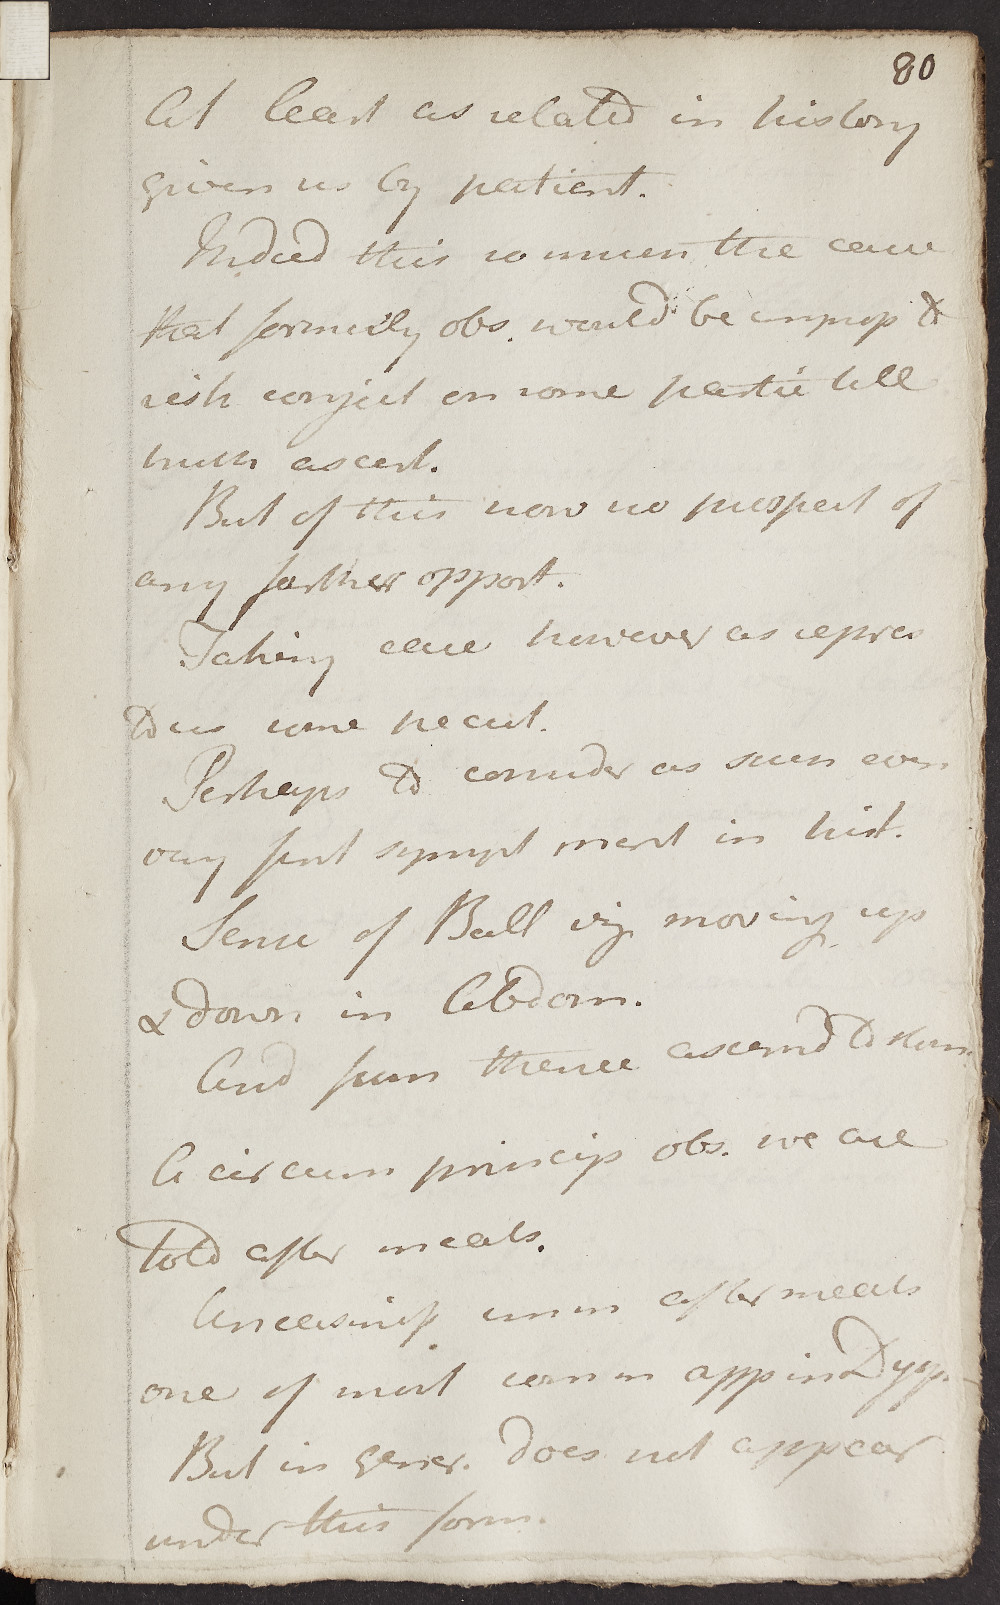 80
At least as related in history
given us by patient.
Indeed this so much the case
that formerly obs. would be improp to
risk conject on some partic till
truth ascert.
But of this now no prospect of
any farther opport.
Taking case however as repres
to us some pecul.
Perhaps to consider as such even
very first sympt ment in hist.
Sense of Ball viz moving up
& down in Abdom.
And from thence ascend to Stom.
A circum princip obs. we are
told after meals.
Uneasiness imm after meals
one of most comm app in Dysp.
But in gener. does not appear
under this form.